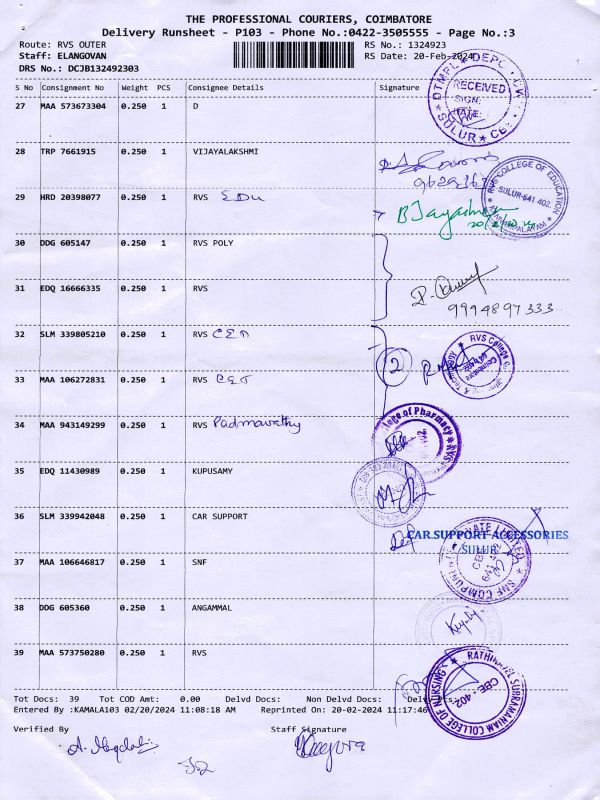 THE PROFESSIONAL COURIERS, COIMBATORE
Delivery Runsheet - P103 - Phone No.:0422-3505555 - Page No.:3
Route: RVS OUTER RS No.: 1324923
Staff: ELANGOVAN RS Date: 20-Feb-2024
DRS No.: DCJB132492303
S No Consignment No Weight PCS Consignee Details Signature
27 MAA 573673304 0.250 1 D
RECEIVED
SIGN:
DATE:
SULUR
28 TRP 7661915 0.250 1 VIJAYALAKSHMI
29 HRD 20398077 0.250 1 RVS EDU
RVS COLLEGE OF EDUCATION
SULUR-641 402.
20/2/2024
30 DDG 605147 0.250 1 RVS POLY
31 EDQ 16666335 0.250 1 RVS
9994897333
32 SLM 339805210 0.250 1 RVS CET
2
RVS College
33 MAA 106272831 0.250 1 RVS CET
34 MAA 943149299 0.250 1 RVS Padmavathy
College of Pharmacy RVS
35 EDQ 11430989 0.250 1 KUPUSAMY
36 SLM 339942048 0.250 1 CAR SUPPORT
CAR SUPPORT ACCESSORIES
SULUR
37 MAA 106646817 0.250 1 SNF
SNF COMPONENTS PRIVATE LIMITED
38 DDG 605360 0.250 1 ANGAMMAL
39 MAA 573750280 0.250 1 RVS
RATHNAVEL SUBRAMANIAM COLLEGE OF NURSING
CBE-402
Tot Docs: 39 Tot COD Amt: 0.00 Delvd Docs: Non Delvd Docs:
Entered By :KAMALA103 02/20/2024 11:08:18 AM Reprinted On: 20-02-2024 11:17:46
Verified By Staff Signature